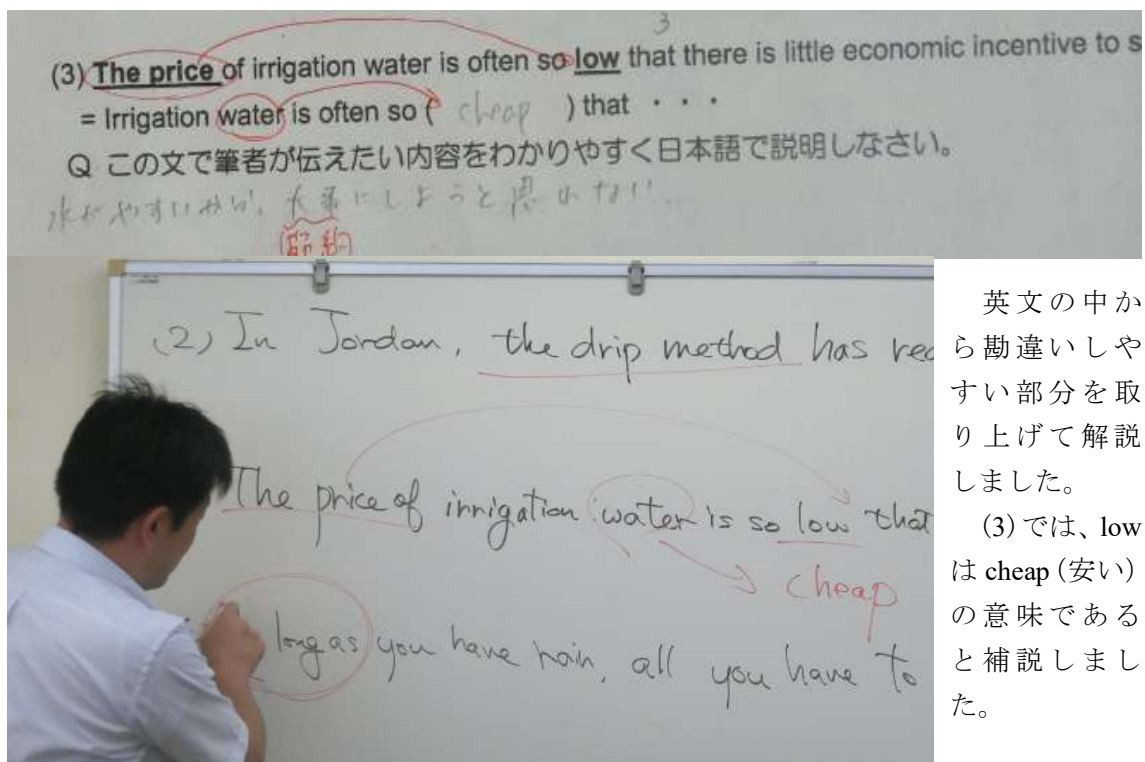 3
(3) The price of irrigation water is often so low that there is little economic incentive to s
= Irrigation water is often so ( cheap ) that ・・・
Q この文で筆者が伝えたい内容をわかりやすく日本語で説明しなさい。
水がやすいから、大事にしようと思わない.
(節約)
(2) In Jordan, the drip method has rec
The price of irrigation water is so low that
cheap
long as you have rain, all you have to
英文の中か
ら勘違いしや
すい部分を取
り上げて解説
しました。
(3)では、low
は cheap(安い)
の意味である
と補説しまし
た。